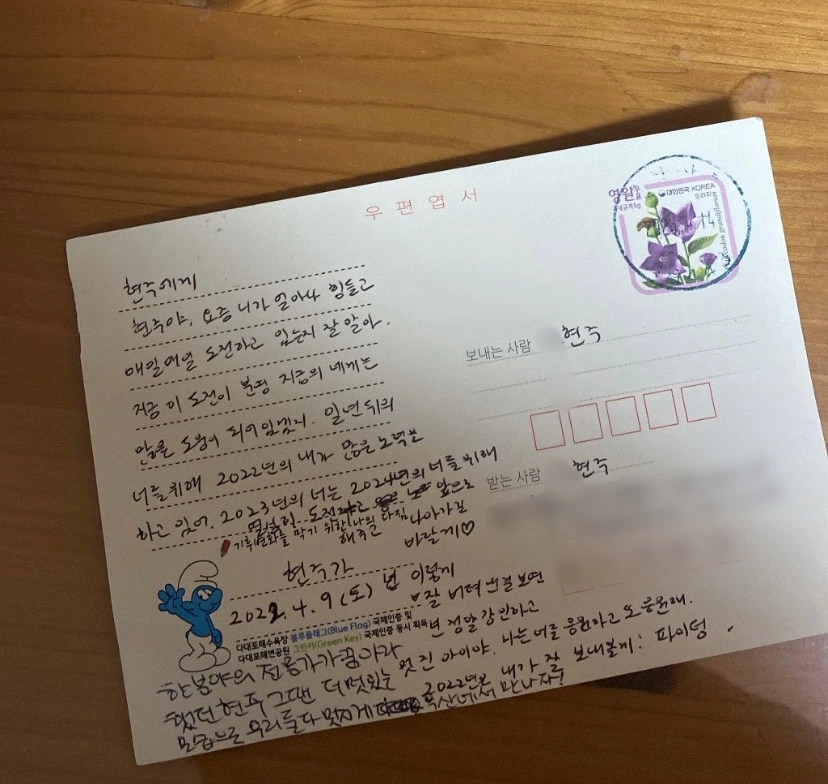 우편엽서
영원우표
대한민국 KOREA
도라지
현주에게
현주야, 요즘 니가 얼마나 힘들고
매일매일 도전하고 있는지 잘 알아.
지금 이 도전이 분명 지금의 네게는
많은 도움이 되어있겠지. 일년뒤의
너를위해 2022년의 내가 많은 노력을
하고 있어. 2023년의 너는 2024년의 너를 위해
열심히 도전하고 앞으로
해주고 나아가길
바랄게♡
기후변화를 막기 위한 나의 다짐
현주가
2022.4.9(토)
넌 이렇게
잘 버텨 보면
넌 정말 강인하고
멋진 아이야. 나는 너를 응원하고 또 응원해.
2022년은 내가 잘 보내볼게! 파이팅
다대포해수욕장 블루플래그(Blue Flag) 국제인증 및
다대포해변공원 그린키(Green Key) 국제인증 동시 획득
한 분야의 전문가가 꿈이라
했던 현주 그땐 더 멋있는
모습으로 우리 둘다 멋지게 부산에서 만나자!
보내는 사람 현주
받는 사람 현주